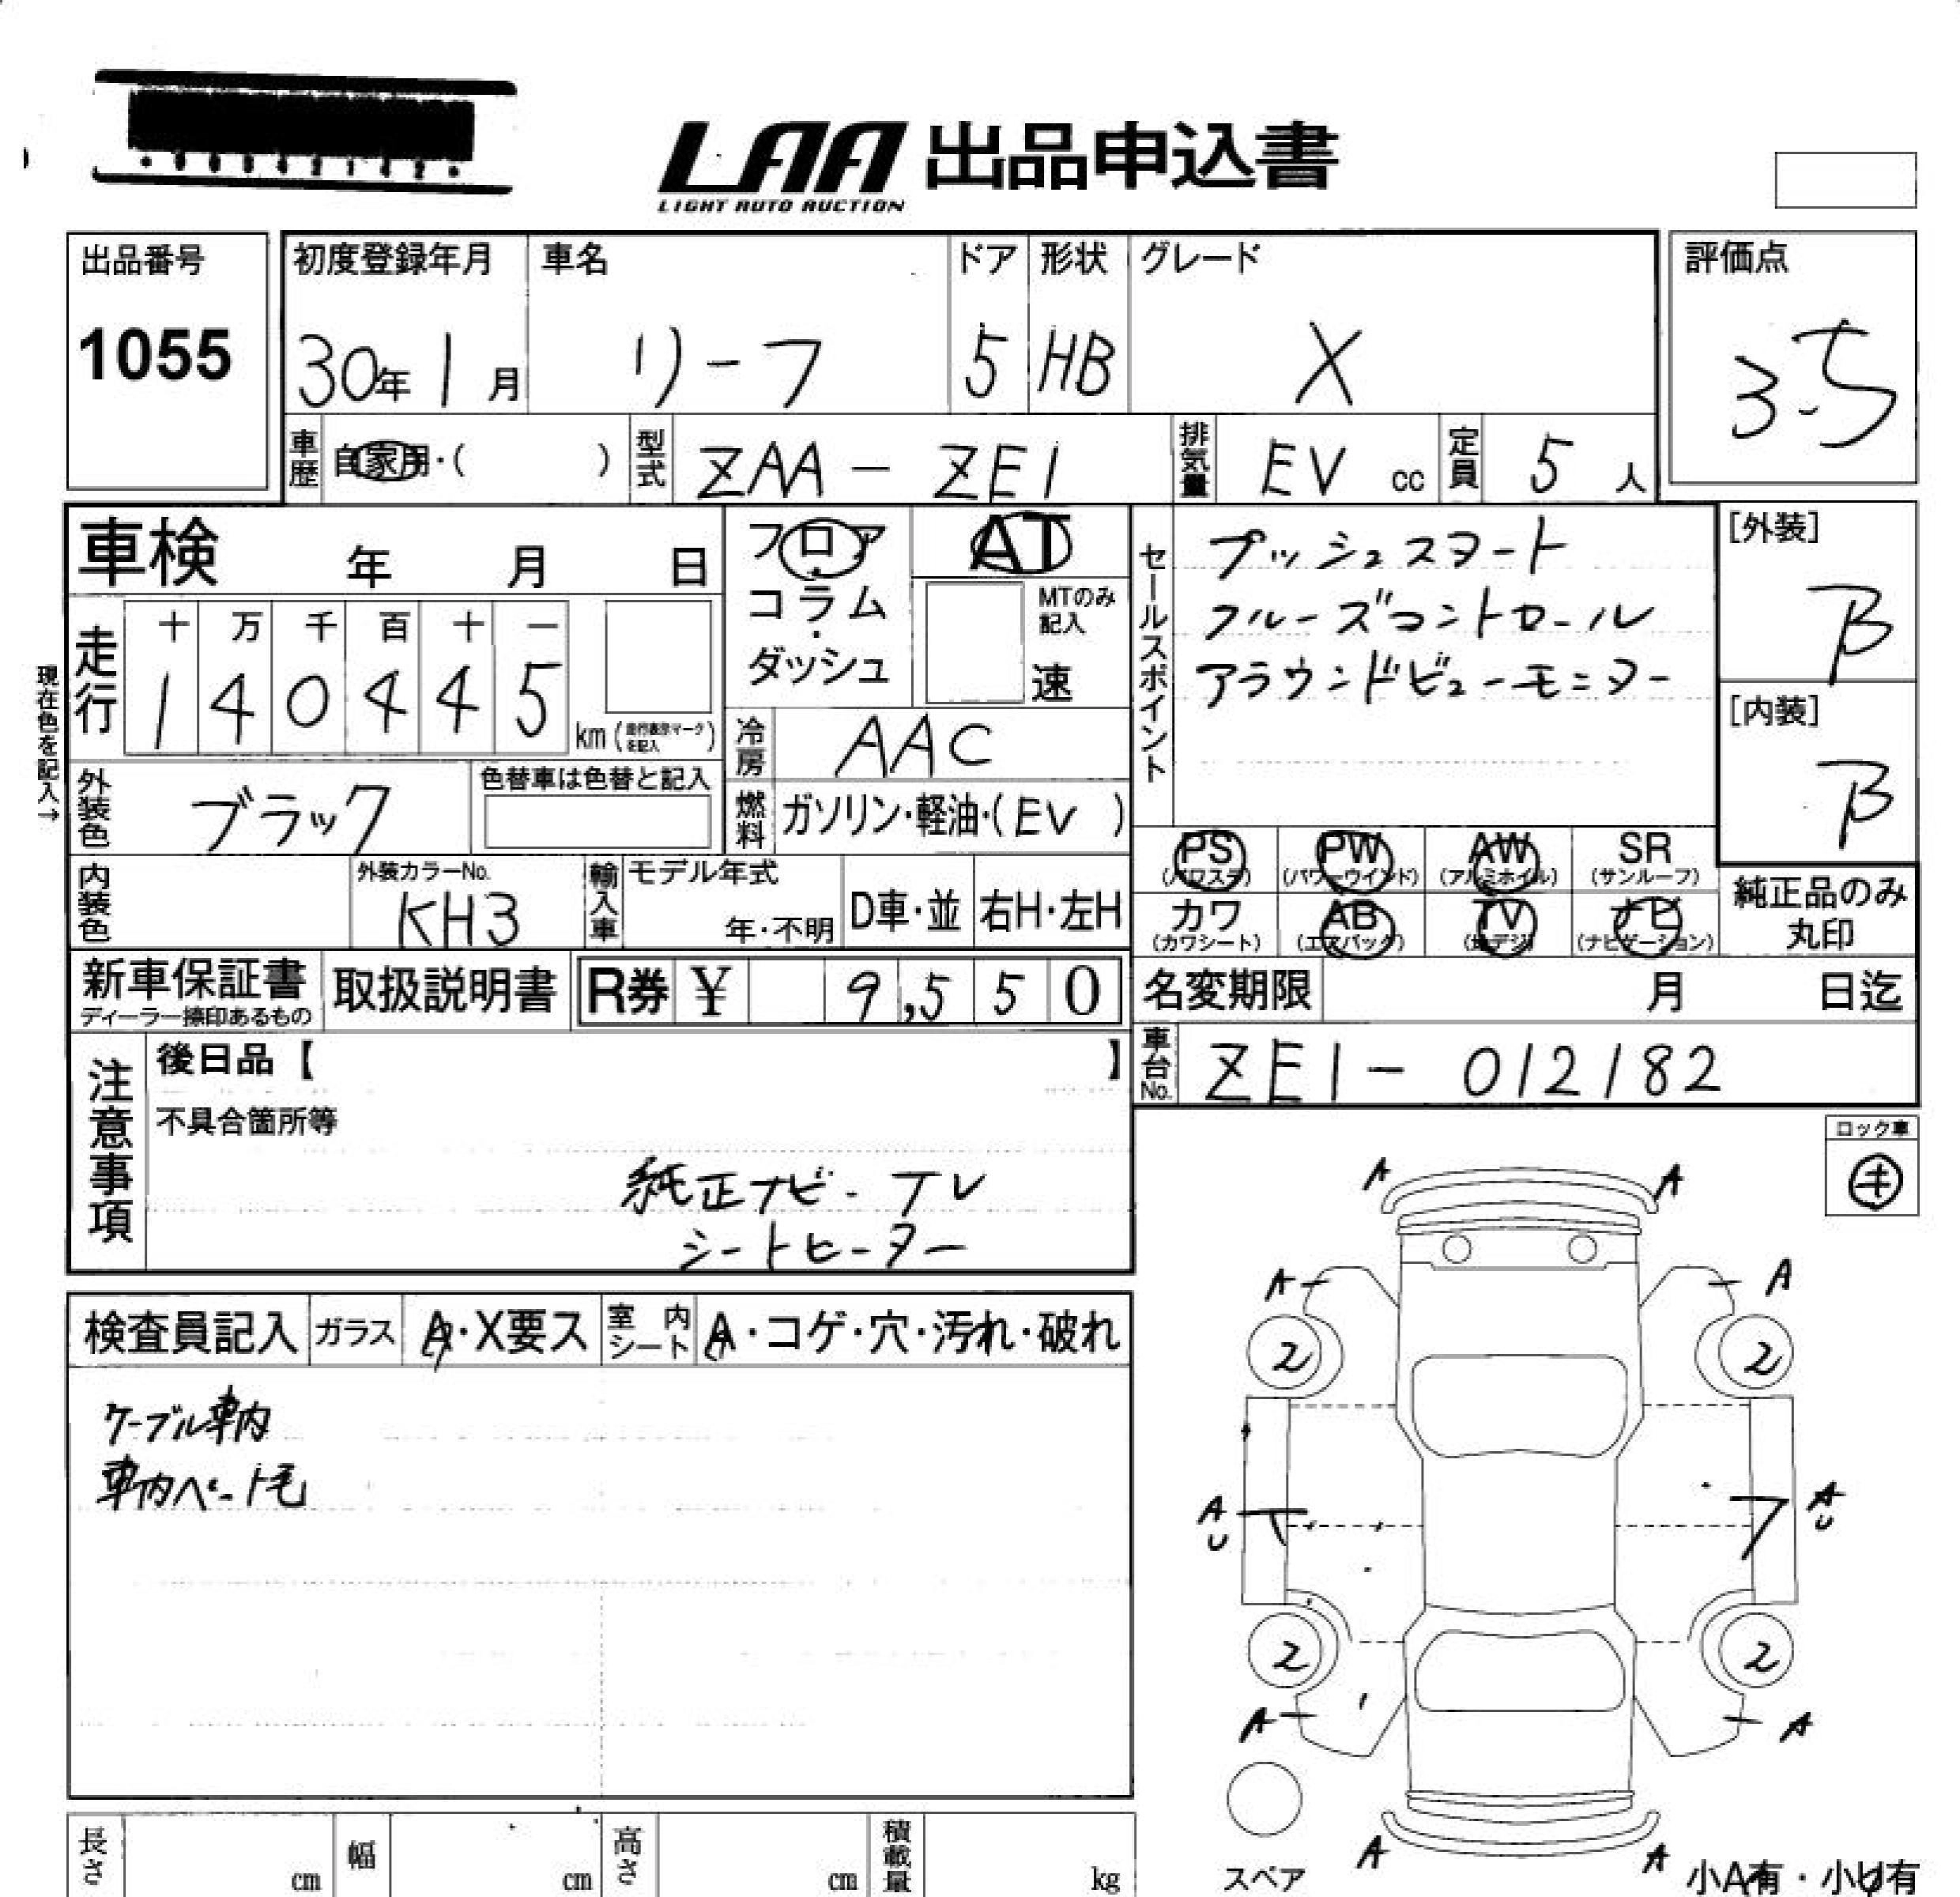 LAA 出品申込書
LIGHT AUTO AUCTION
出品番号
1055
初度登録年月 車名 ドア 形状 グレード
30年 1月 リーフ 5 HB X
評価点
3.5
車歴 自家用・( ) 型式 ZAA - ZE1 排気量 EV cc 定員 5 人
車検 年 月 日
フロア・コラム・ダッシュ
AT
MTのみ記入
速
セールスポイント
プッシュスタート
クルーズコントロール
アラウンドビューモニター
[外装]
B
[内装]
B
現在色を記入→
走行
十 万 千 百 十 一
1 4 0 4 4 5
km (走行表示マークを記入)
冷房 AAC
外装色 ブラック
色替車は色替と記入
燃料 ガソリン・軽油・(EV )
PS PW AW SR
(パワステ) (パワーウインド) (アルミホイル) (サンルーフ)
カワ AB TV ナビ
(カワシート) (エアバック) (地デジ) (ナビゲーション)
純正品のみ
丸印
内装色
外装カラーNo.
KH3
輸入車 モデル年式
年・不明
D車・並 右H・左H
新車保証書
ディーラー捺印あるもの
取扱説明書
R券 ¥ 9,550
名変期限 月 日迄
車台No. ZE1 - 012182
注意事項
後日品【 】
不具合箇所等
純正ナビ・TV
シートヒーター
ロック車
キ
検査員記入 ガラス A・X要ス 室内シート A・コゲ・穴・汚れ・破れ
ケーブル車内
車内ペット毛
A A
A A
2 2
A A
U U
2 2
A A
A A
スペア
小A有・小U有
長さ cm 幅 cm 高さ cm 積載量 kg